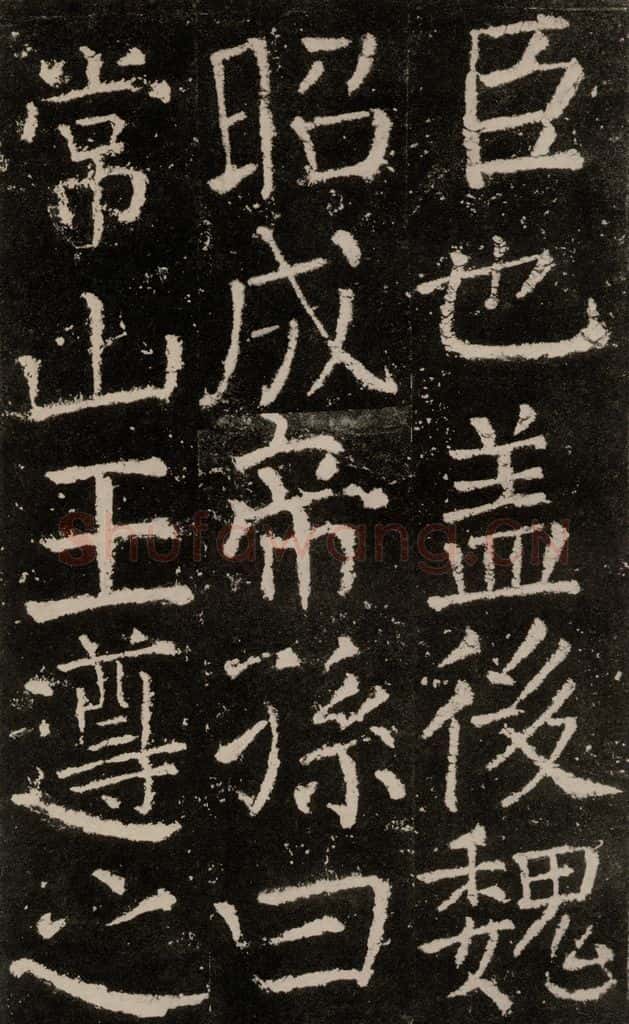 臣也盖後魏
昭成帝孫曰
常山王遵之
Shufawang.CN